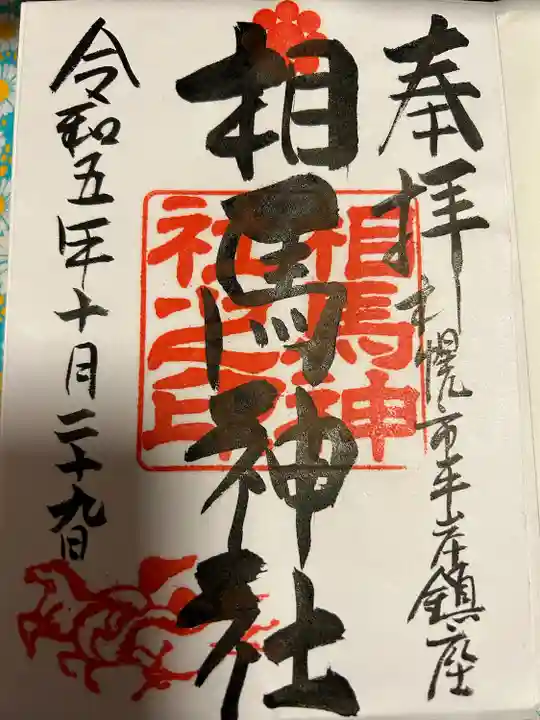 奉拝
札幌市平岸鎮座
相馬神社
相馬神社之印
令和五年十月二十九日